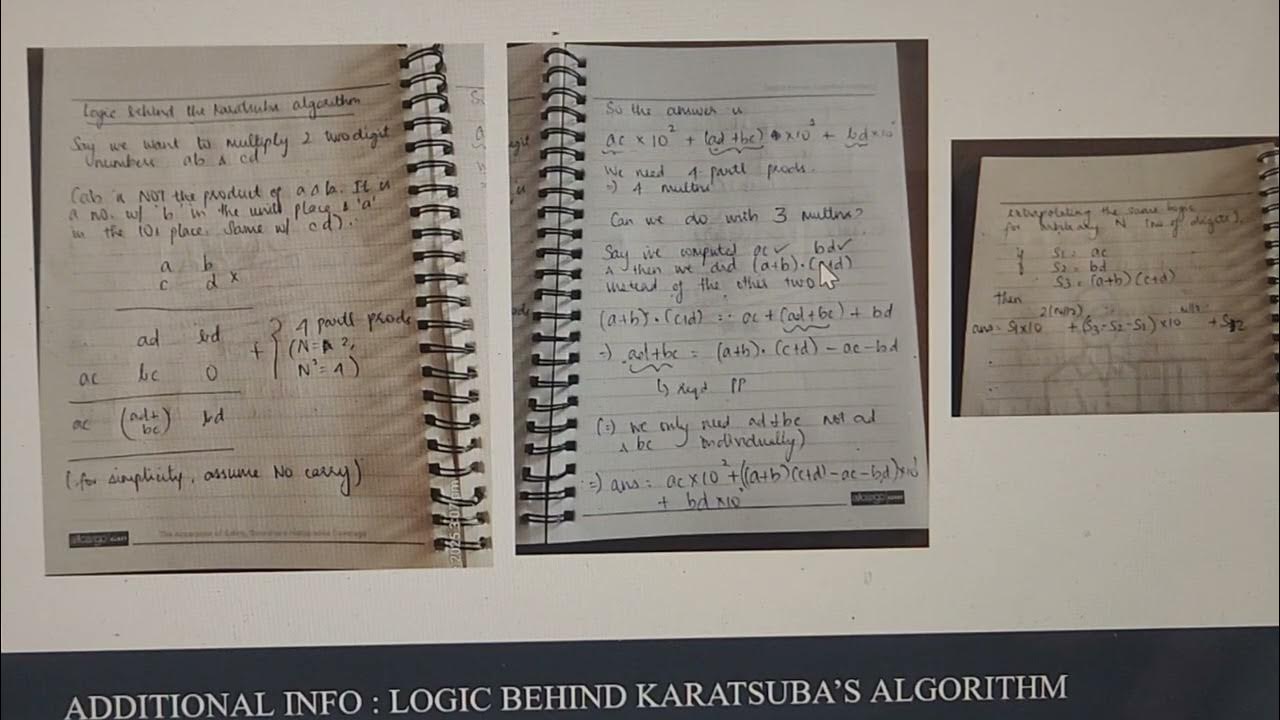 Logic behind the Karatsuba algorithm
Say we want to multiply 2 two digit
numbers ab & cd
(ab is NOT the product of a & b. It is
a no. w/ 'b' in the units place & 'a'
in the 10s place. Same w/ cd).
a b
c d ×
ad bd
ac bc 0
+ { 4 partl prods
(N = 2,
N² = 4)
ac (ad+ bd
bc)
(for simplicity, assume NO carry)
allcargo
So the answer is
ac × 10² + (ad+bc) × 10 + bd × 10
We need 4 partl prods.
=) 4 multns
Can we do with 3 multns?
Say we computed ac ✓ bd ✓
& then we did (a+b)·(c+d)
instead of the other two
(a+b)·(c+d) = ac + (ad+bc) + bd
=) ad+bc = (a+b)·(c+d) - ac - bd
↳ reqd PP
(=) we only need ad+bc not ad
& bc individually)
=) ans = ac × 10² + ((a+b)(c+d) - ac - bd) × 10
+ bd × 10
allcargo
extrapolating the same logic
for arbitrary N (no of digits),
if S1 = ac
S2 = bd
S3 = (a+b)(c+d)
then
ans = S1×10^2(N/2) + (S3-S2-S1)×10^N/2 + S2
ADDITIONAL INFO : LOGIC BEHIND KARATSUBA'S ALGORITHM